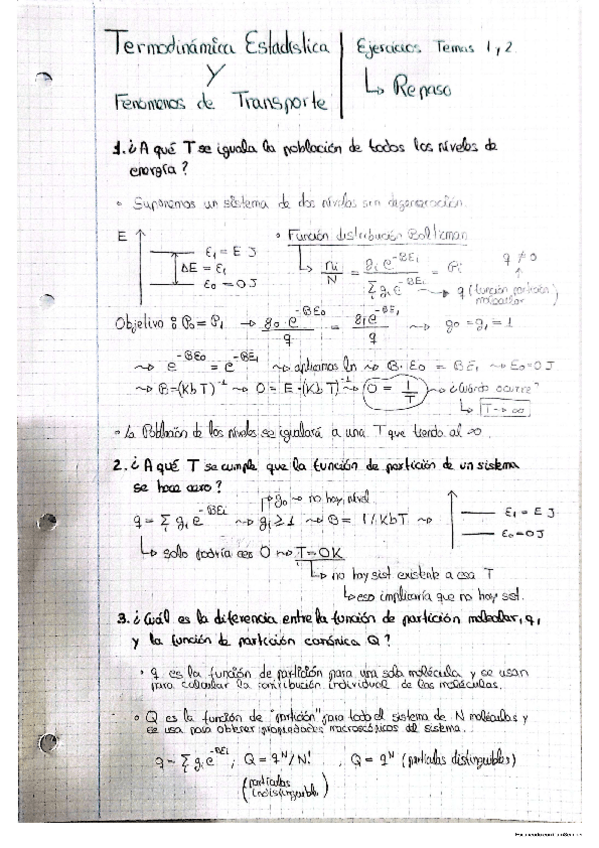 Termodinámica Estadística
y
Fenómenos de Transporte
Ejercicios Temas 1 y 2.
↳ Repaso
1. ¿A qué T se iguala la población de todos los niveles de
energía?
• Suponemos un sistema de dos niveles sin degeneración.
E ↑ ε₁ = E J
ΔE = ε₁
ε₀ = 0 J
• Función distribución Boltzman
↳ ni/N = gi e^-βEi / Σ gi e^-βEi = Pi
q ≠ 0
q (función partición molecular)
Objetivo : P₀ = P₁ → g₀ e^-βE₀ / q = g₁ e^-βE₁ / q ⇝ g₀ = g₁ = 1
⇝ e^-βE₀ = e^-βE₁ ⇝ aplicamos ln ⇝ β · E₀ = βE₁ ⇝ E₀ = 0 J
⇝ β = (Kb T)⁻¹ ⇝ 0 = E · (Kb T)⁻¹ ⇝ 0 = 1/T ⇝ ¿Cuándo ocurre?
↳ T → ∞
• La Población de los niveles se igualará a una T que tiende al ∞.
2. ¿A qué T se cumple que la función de partición de un sistema
se hace cero?
g₀ ⇝ no hay nivel
q = Σ gi e^-βEi ⇝ gi ≥ 1 ⇝ β = 1/KbT ⇝
ε₁ = E J
ε₀ = 0 J
↳ solo podría ser 0 ⇝ T = 0K
↳ no hay sist existente a esa T
↳ eso implicaría que no hay sist.
3. ¿Cuál es la diferencia entre la función de partición molecular, q,
y la función de partición canónica Q?
• q es la función de partición para una sola molécula y se usan
para calcular la contribución individual de las moléculas.
• Q es la función de "partición" para todo el sistema de N moléculas y
se usa para obtener propiedades macroscópicas del sistema.
q = Σ gi e^-βEi ; Q = q^N/N! , Q = q^N (partículas distinguibles)
(partículas
indistinguibles)